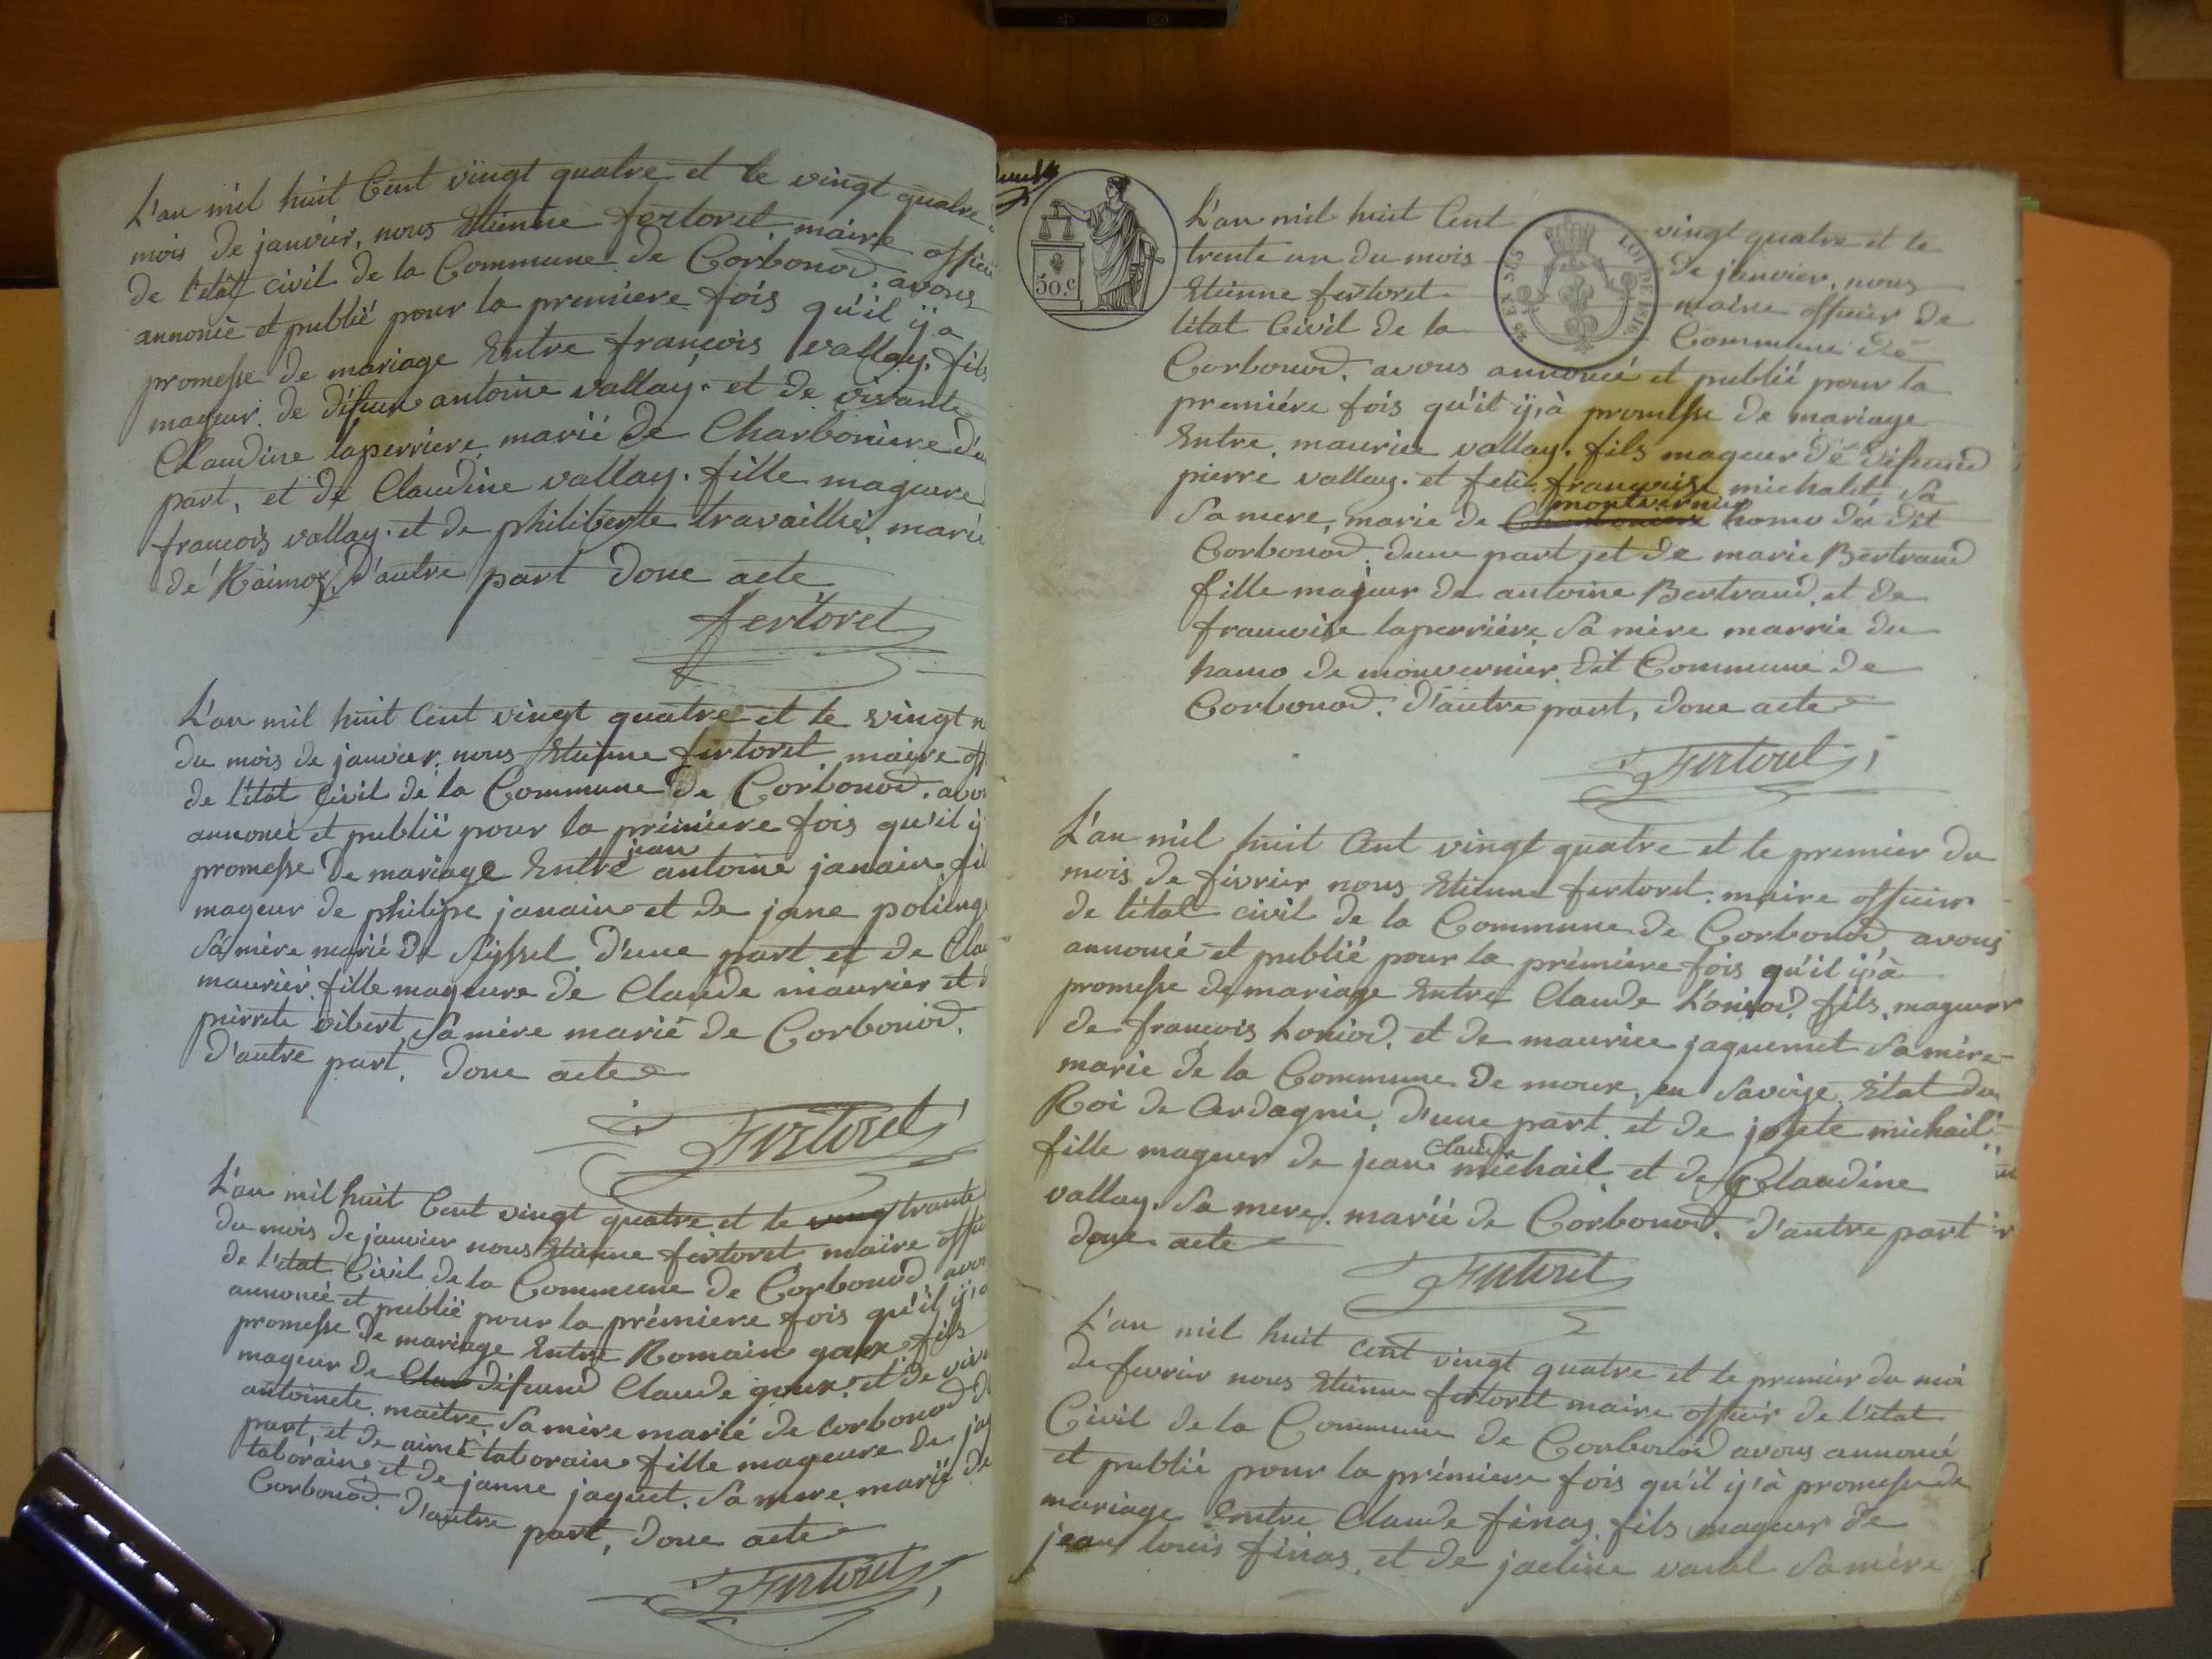 L'an mil huit Cent vingt quatre et le vingt quatre
mois de janvier, nous Etienne fertoret maire officier
de l'etat civil de la Commune de Corbonod, avons
annoncé et publié pour la premiere fois qu'il ÿ a
promesse de mariage Entre françois vallay, fils
mageur de défunt antoine vallay. et de vivante
Claudine laperriere marié de Charboniere d'u
part, et de Claudine vallay. fille mageure
francois vallay. et de philiberte travaillié, marié
de d'autre part Donc acte
fertoret
L'an mil huit Cent vingt quatre et le vingt n
du mois de janvier, nous Etienne fertoret maire off
de l'état Civil de la Commune de Corbonod. avon
annoncé et publié pour la prémiere fois qu'il ÿ
jean
promesse de mariage Entre antoine janain fil
mageur de philipe janain et de jane
Sa mère marié de Sÿssel d'une part et de Cla
maurier fille mageure de Claude maurier et
pierrete vibert, Sa mère marié de Corbonod.
d'autre part. Donc acte
Fertoret
L'an mil huit Cent vingt quatre et le vingt trante
du mois de janvier nous Etienne fertoret maire offi
de l'état Civil de la Commune de Corbonod avon
annoncé et publié pour la prémiere fois qu'il ÿ a
promesse de mariage Entre Romain goux fils
mageur de Clau défund Claude goux. et de viv
antoinete maitre, Sa mère marié de Corbonod d
part, et de aimé taborain fille mageure de ja
taborain et de janne jaquet. Sa mere marié de
Corbonod. d'autre part, Donc acte
Fertoret
50.c
25 EN SUS
LOI DE 1816
L'an mil huit Cent vingt quatre et le
trente un du mois de janvier, nous
Etienne fertoret maire officier de
l'état Civil de la Commune de
Corbonod. avons annoncé et publié pour la
premiére fois qu'il ÿ, à promesse de mariage
Entre. maurice vallay. fils mageur de défund
pierre vallay. et feue françoise michalet, Sa
montvernier
Sa mere, marie de Charboniere homo du dit
Corbonod, dune part, et de marie Bertrand
fille majeur de antoine Bertrand, et de
francoise laperriére Sa mère marrie du
hamo de monvernier dit Commune de
Corbonod. d'autre part, donc acte
Fertoret
L'an mil huit Cent vingt quatre et le premier du
mois de février nous Etienne fertoret maire officier
de l'état civil de la Commune de Corbonod, avons
annoncé et publié pour la prémiere fois qu'il ÿ à
promesse de mariage Entre Claude fils mageur
de francois et de maurice jaquemet Sa mère
marie de la Commune de en Savoye, Etat du
Roi de Cerdagnie, d'une part. et de josete michail
Claude
fille mageur de jean michail et de Claudine
vallay. Sa mere. marié de Corbonod. d'autre part
donc acte
Fertoret
L'an mil huit cent vingt quatre et le premier du moi
de fevrier nous Etienne fertoret maire officir de l'état
Civil de la Commune de Corbonod avons annoncé
et publié pour la prémiere fois qu'il ÿ à promesse de
mariage Entre Claude finas, fils mageur de
jean louis finas, et de jacline Sa mère